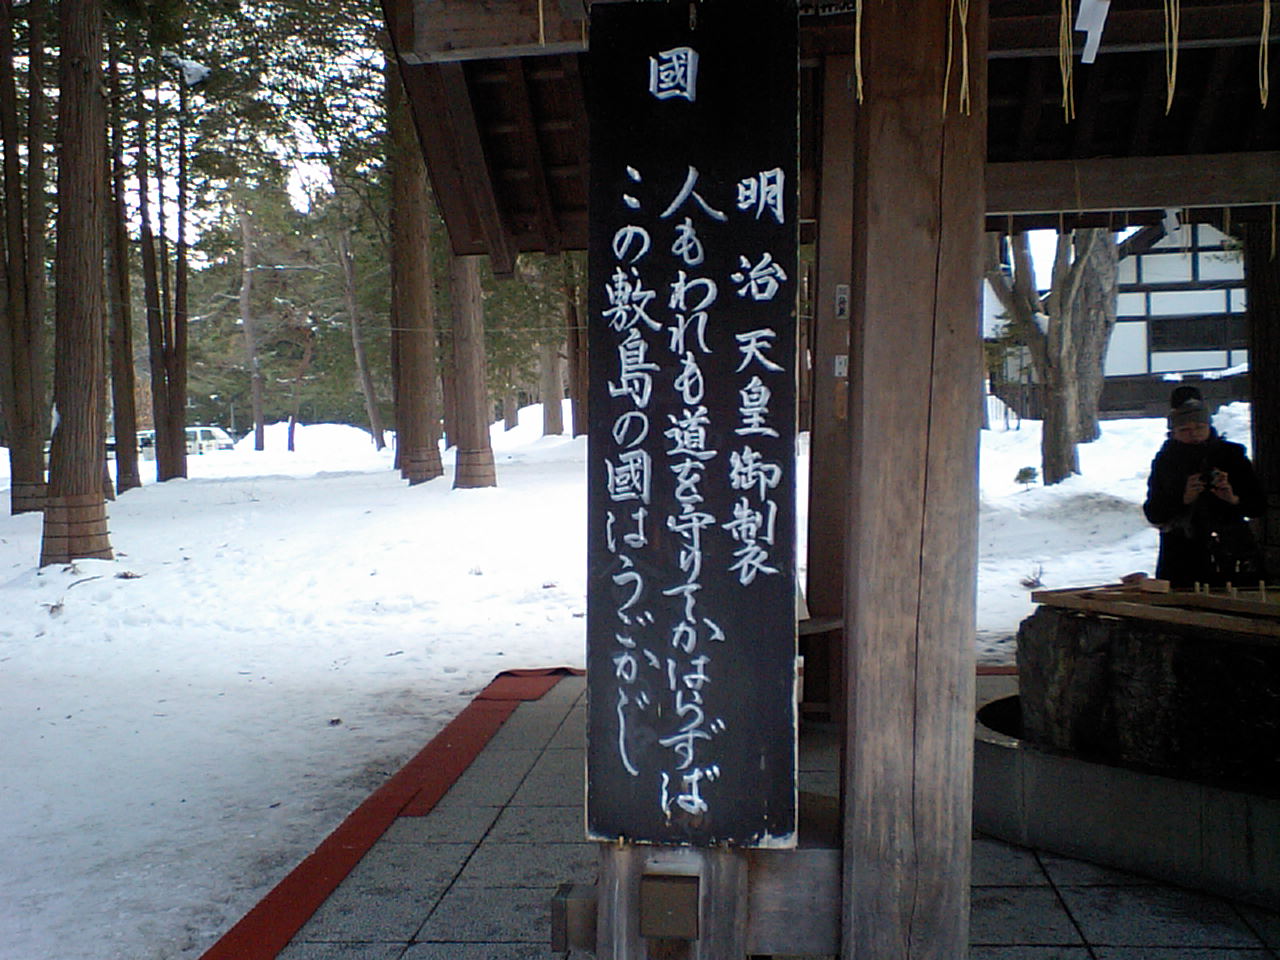 國
明治天皇御製
人もわれも道を守りてかはらずば
この敷島の國はうごかじ